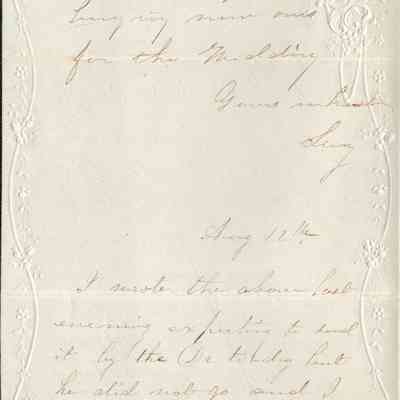 for the Wedding
Yours in haste
Lucy
Aug 12th
I wrote the above last
evening expecting to send
it by the Dr to day but
he did not go and I